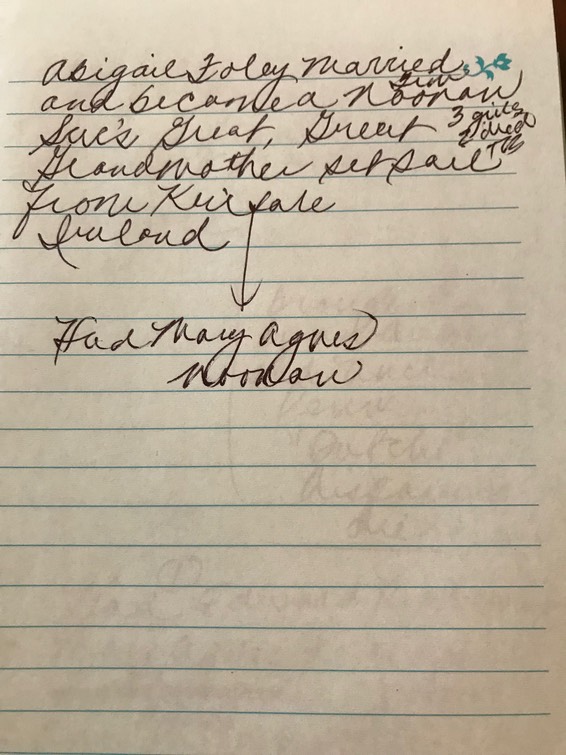 Abigail Foley married
Tim
and became a Noonan
Sue's Great, Great
3 girls
2 died
TB
Grandmother set sail
from Kinsale
Ireland
Had Mary Agnes
Noonan